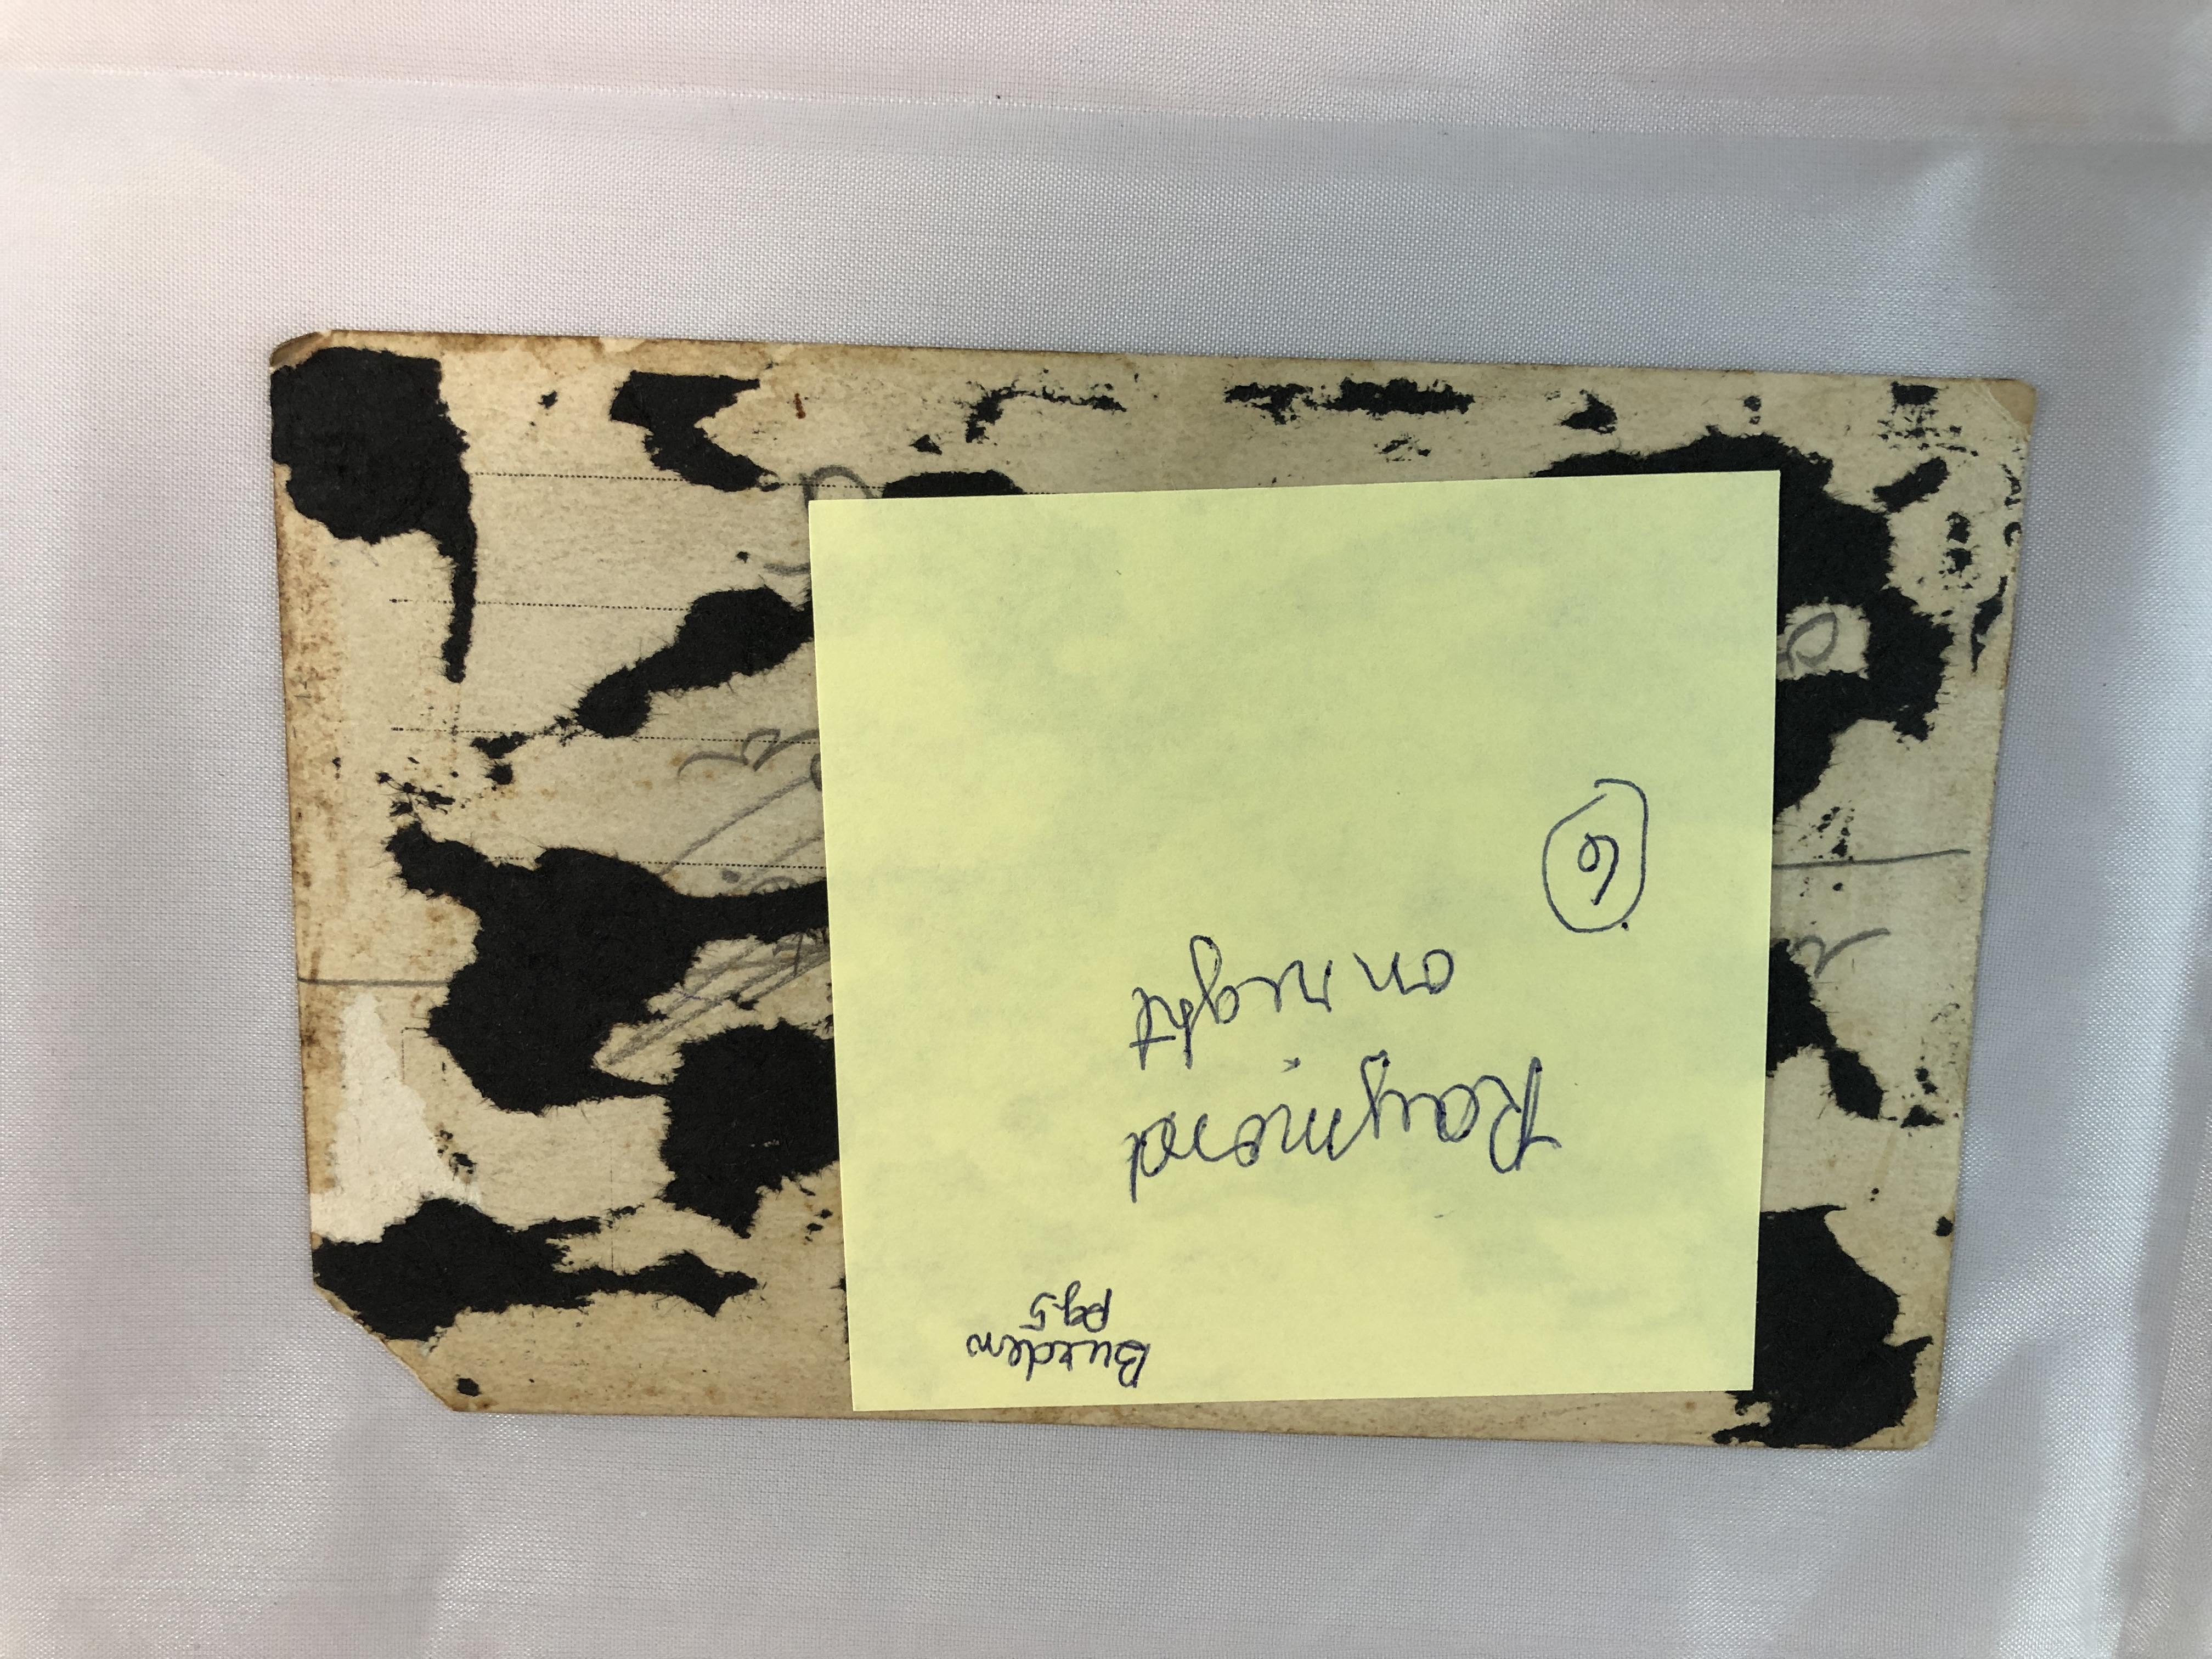 Burden
pg. 5
Raymond
on right
6